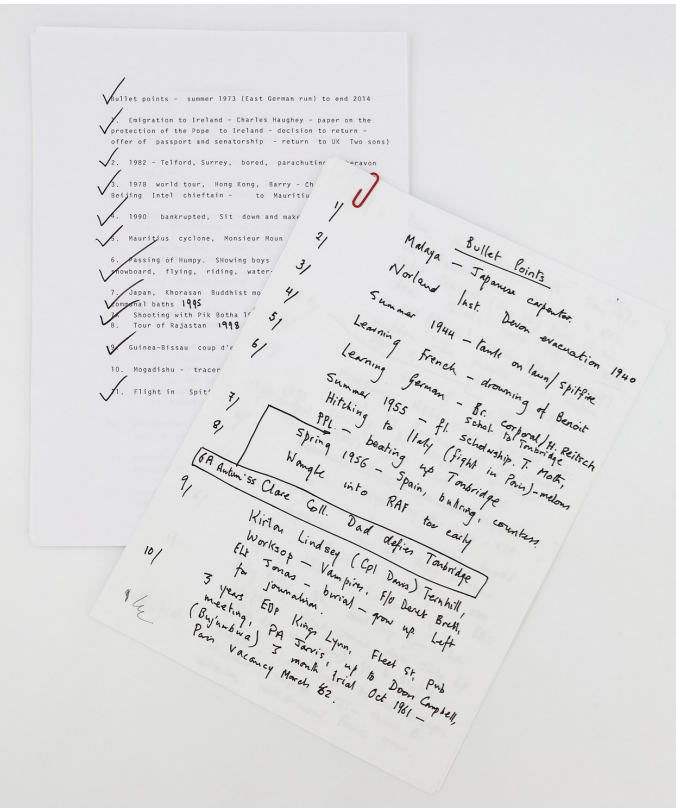 Bullet points - summer 1973 (East German run) to end 2014
1. Emigration to Ireland - Charles Haughey - paper on the
protection of the Pope to Ireland - decision to return -
offer of passport and senatorship - return to UK Two sons)
2. 1982 - Telford, Surrey, bored, parachuting
3. 1978 world tour, Hong Kong, Barry - Ch
Beijing Intel chieftain - to Mauritiu
4. 1990 bankrupted, Sit down and make
5. Mauritius cyclone, Monsieur Moun
6. Passing of Humpy. SHowing boys
snowboard, flying, riding, water-
7. Japan, Khorasan Buddhist mo
communal baths 1995
Shooting with Pik Botha
8. Tour of Rajastan 1998
9. Guinea-Bissau coup d'e
10. Mogadishu - tracer
11. Flight in Spit
Bullet Points
1/ Malaya - Japanese carpenter.
2/ Norland Inst. Devon evacuation 1940
3/ Summer 1944 - tank on lawn/spitfire
4/ Learning French - drowning of Benoit
5/ Learning German - Br. corporal/H. Reitsch
6/ Summer 1955 - fl. schol. to Tonbridge
scholarship. T. Moth,
Hitching to Italy (fight in Paris) - melons
7/ PPL - beating up Tonbridge
8/ Spring 1956 - Spain, bullring, countess.
Wangle into RAF too early
6A Autumn '55 Clare Coll. Dad defies Tonbridge
9/ Kirton Lindsey (Cpl Davis) Ternhill,
Worksop - Vampires, F/O Derek Brett,
Flt Jonas - burial - grow up Left
for journalism.
10/ 3 years EDP Kings Lynn, Fleet St, pub
meeting, PA Jarvis, up to Doon Campbell,
(Bujumbura) 3 month trial Oct 1961 -
Paris vacancy March 62.